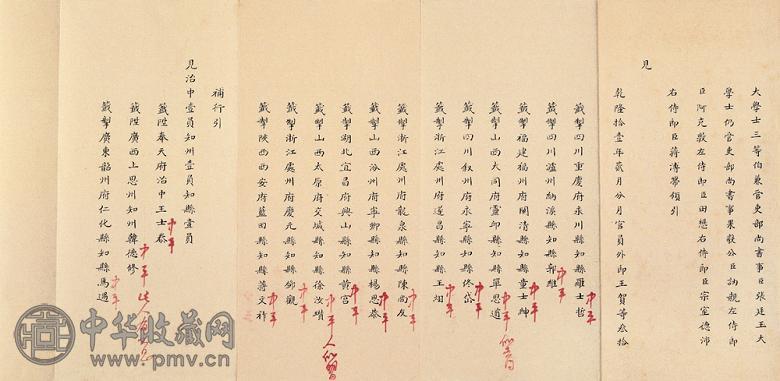 大學士三等伯兼管吏部尚書事臣張廷玉大
學士仍管吏部尚書事果毅公臣訥親左侍郎
臣阿克敦左侍郎臣田懋右侍郎臣宗室德沛
右侍郎臣蔣溥帶領引
見
乾隆拾壹年貳月分月官員外郎王賀等叁拾
籤掣四川重慶府永川縣知縣羅士哲
中平
籤掣四川瀘州納溪縣知縣郭維
中平
籤掣福建福州府閩清縣知縣童士紳
中平
籤掣山西大同府靈邱縣知縣單思邁
中平
籤掣四川叙州府永寧縣知縣佟岱
中平
籤掣浙江處州府遂昌縣知縣王烟
中平
籤掣浙江處州府龍泉縣知縣陳尚友
中平
籤掣山西汾州府寧鄉縣知縣楊思泰
中平
籤掣湖北宜昌府興山縣知縣黃宮
中平人
籤掣山西太原府交城縣知縣徐汝瓚
中平
籤掣浙江處州府慶元縣知縣鄒觀
中平
籤掣陝西西安府藍田縣知縣蔣文祚
補行引
見治中壹員知州壹員知縣壹員
籤陞奉天府治中王士泰
中平
籤陞廣西上思州知州韓德修
中平
籤掣廣東韶州府仁化縣知縣馬遇
中平
中华收藏网
www.pmv.cn